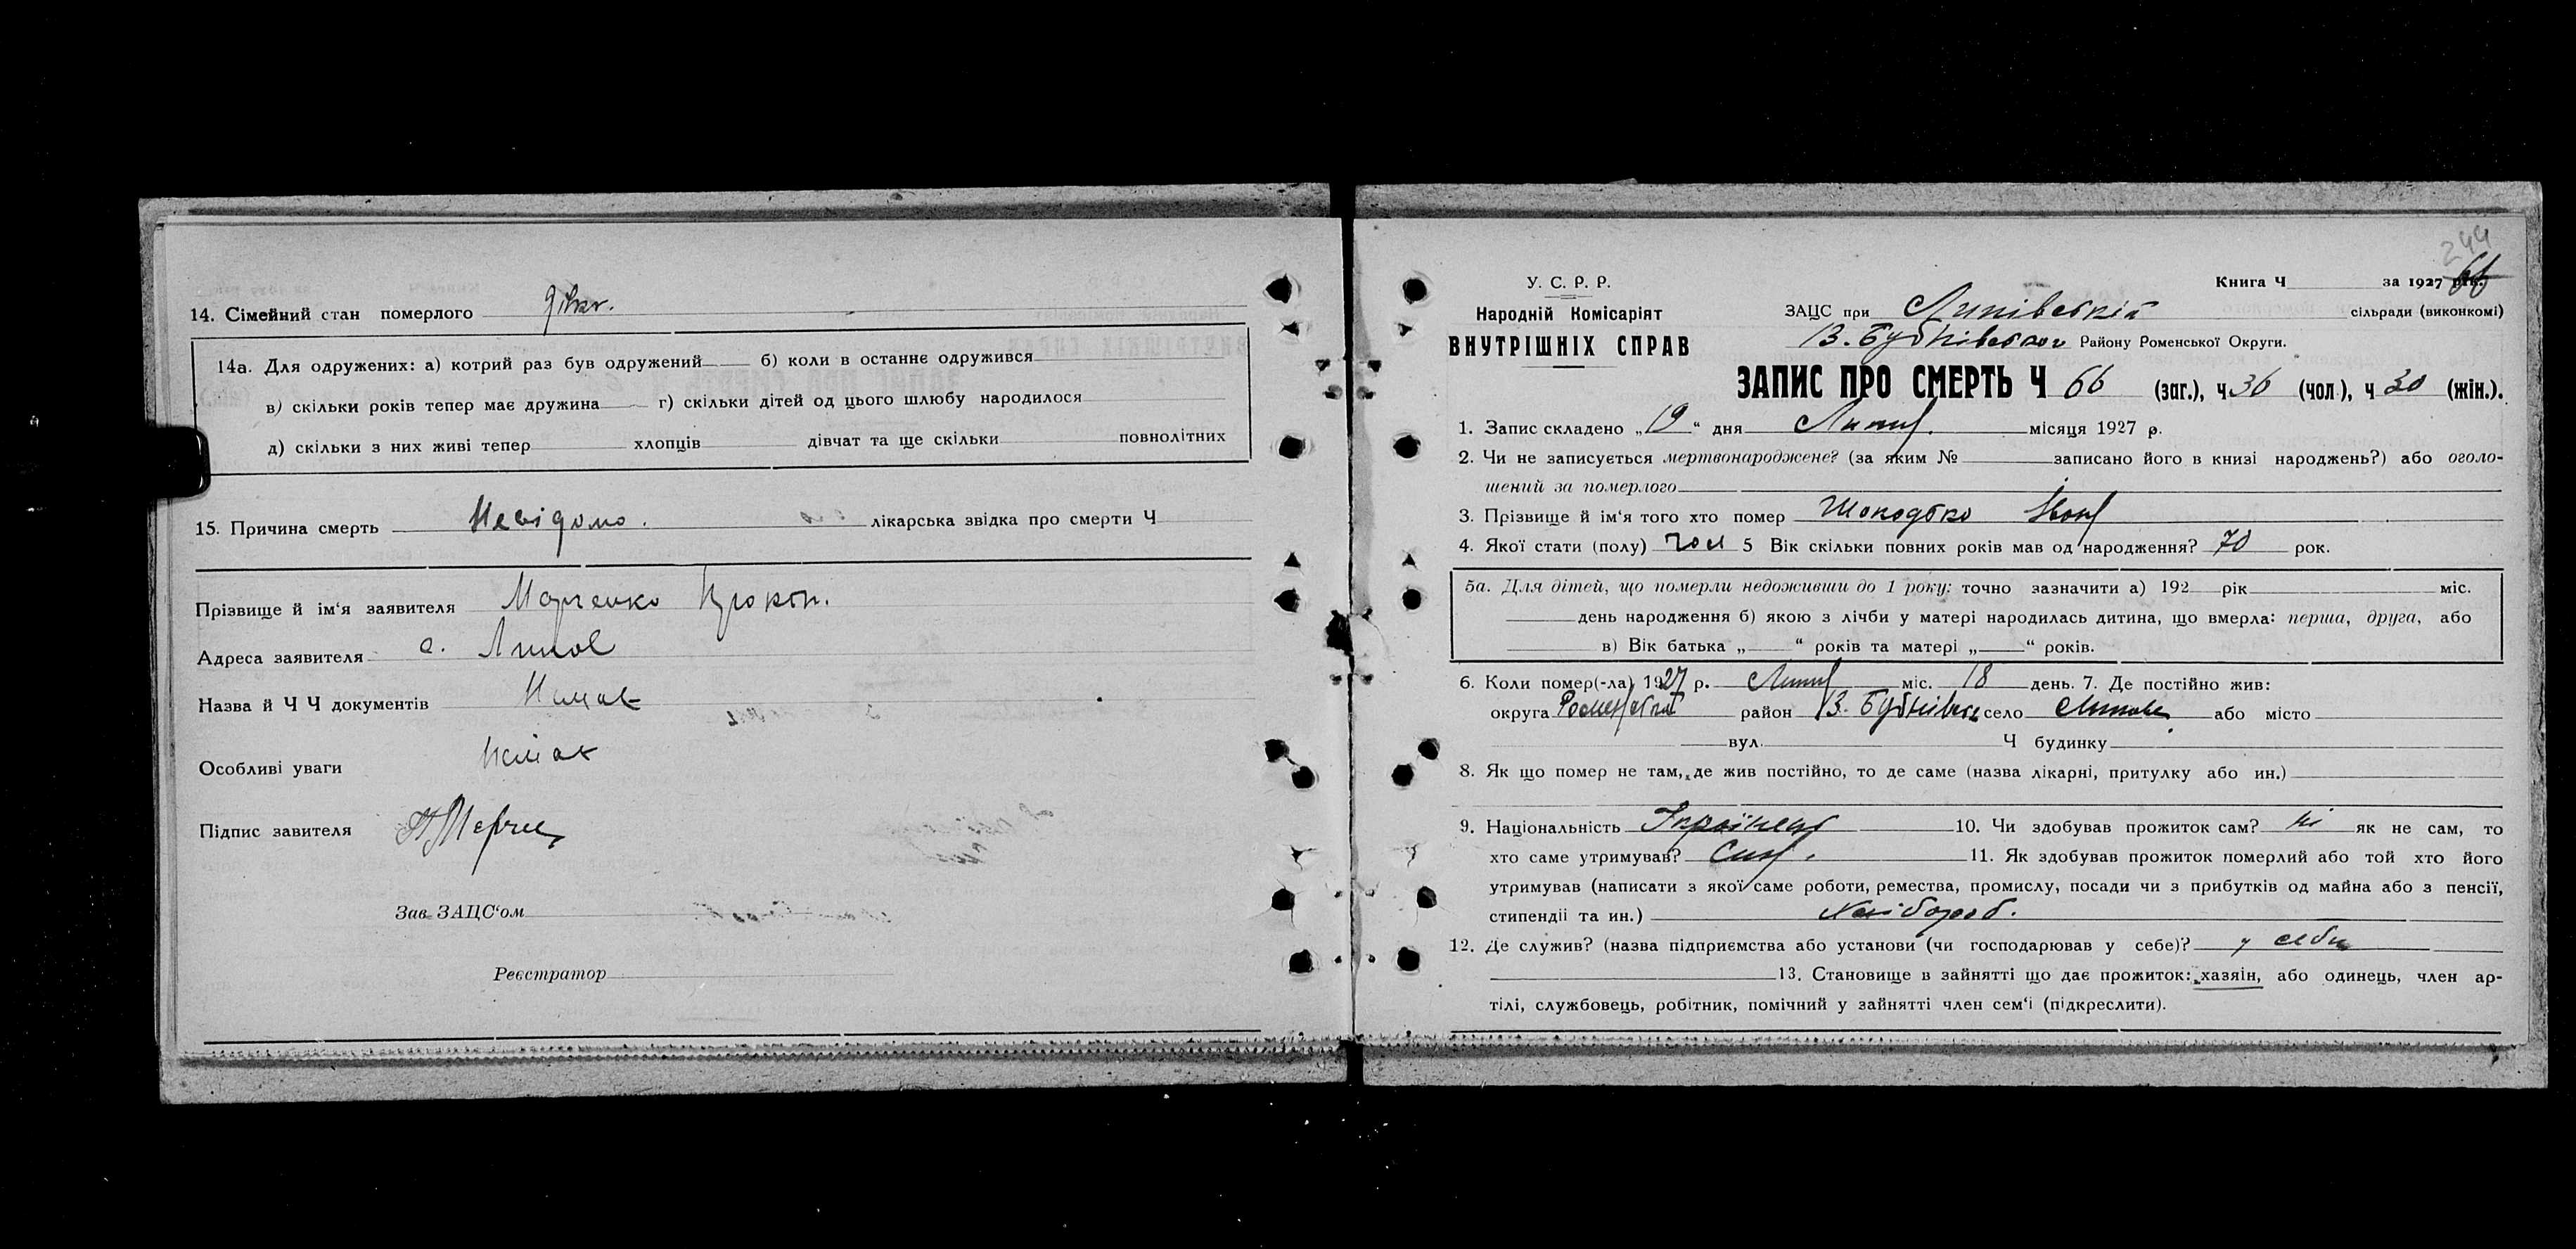 14. Сімейний стан померлого
14а. Для одружених: а) котрий раз був одружений б) коли в останнє одружився
в) скільки років тепер має дружина г) скільки дітей од цього шлюбу народилося
д) скільки з них живі тепер хлопців дівчат та ще скільки повнолітних
15. Причина смерть Невідомо. лікарська звідка про смерти Ч
Прізвище й ім'я заявителя Марченко Прокіп.
Адреса заявителя с. Липове
Назва й Ч Ч документів Немає
Особливі уваги Немає
Підпис завителя
Зав ЗАЦС'ом
Реєстратор
244
У. С. Р. Р.
Книга Ч за 1927 рік. 66
Народній Комісаріят
ЗАЦС при Липівській сільради (виконкомі)
ВНУТРІШНІХ СПРАВ
В. Бубнівського Району Роменської Округи.
ЗАПИС ПРО СМЕРТЬ Ч 66 (заг.), ч 36 (чол.), ч 30 (жін.).
1. Запис складено „19“ дня Липня місяця 1927 р.
2. Чи не записується мертвонароджене? (за яким № записано його в книзі народжень?) або оголо-
шений за померлого
3. Прізвище й ім'я того хто помер Іван
4. Якої стати (полу) чол 5 Вік скільки повних років мав од народження? 70 рок.
5а. Для дітей, що померли недоживши до 1 року: точно зазначити а) 192 рік міс.
день народження б) якою з лічби у матері народилась дитина, що вмерла: перша, друга, або
в) Вік батька „ “ років та матері „ “ років.
6. Коли помер(-ла) 1927 р. Липня міс. 18 день. 7. Де постійно жив:
округа Роменська район В. Бубнівськ село Липове або місто
вул. Ч будинку
8. Як що помер не там, де жив постійно, то де саме (назва лікарні, притулку або ин.)
9. Національність Українець 10. Чи здобував прожиток сам? ні як не сам, то
хто саме утримував? Син. 11. Як здобував прожиток померлий або той хто його
утримував (написати з якої саме роботи, ремества, промислу, посади чи з прибутків од майна або з пенсії,
стипендії та ин.) Хлібороб.
12. Де служив? (назва підприємства або установи (чи господарював у себе)? у себе
13. Становище в зайнятті що дає прожиток: хазяін, або одинець, член ар-
тілі, службовець, робітник, помічний у зайнятті член сем'і (підкреслити).